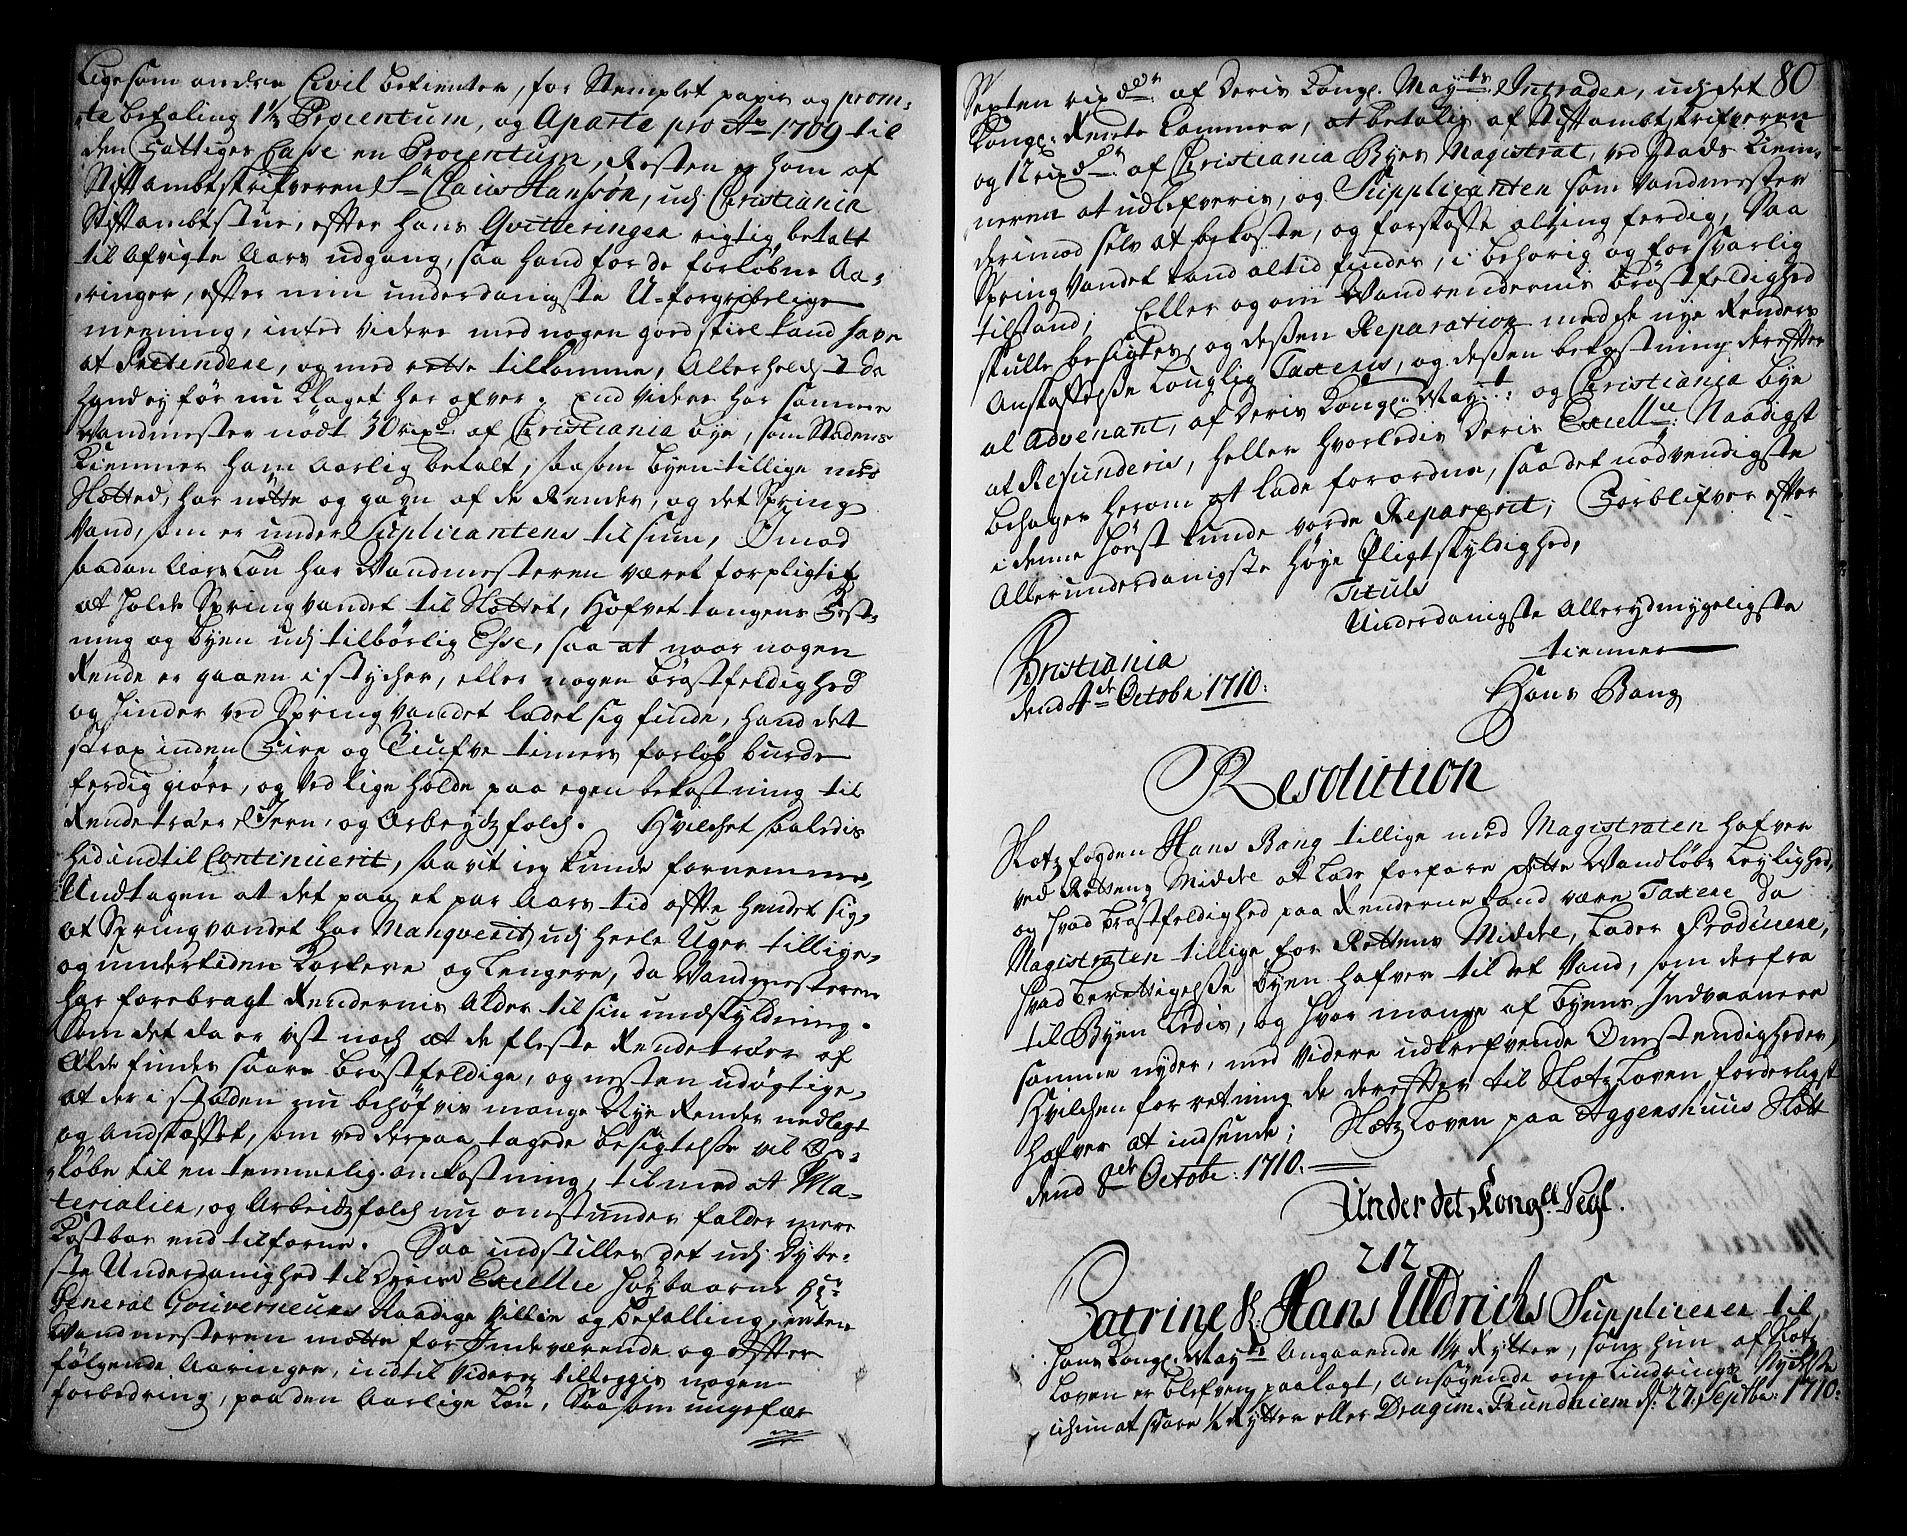 Ligesom andre Civil betienter, for Stemplet papir og prom-
te betaling 1½ Procentum, og Aparte pro Ao 1709 til
den Fattiges Casse en Procentum, Resten er ham af
Stiftambtskrifveren Sr Claus Hanssøn, udj Christiania
Stiftambtstue, efter hans Qvitteringer rigtig betalt
til Afvigte Aars udgang, saa hand for de forløbne Aa-
ringer, efter min underdanigste U-forgribelige
meening, inted videre med nogen goed skiel kand have
at Prætendere, og med rette tilkomme, Allerhelst da
hand ej før nu klaget her ofver. End videre har samme
Vandmester nødt 30 rixdr af Christiania bye, som Stadens
Kiemner ham Aarlig betalt, saasom byen tillige med
Slotted, har nøtte og gavn af de Render, og det Spring
Vand, som er under Supplicantens tilsiun, Imod
saadan Aars Løn har Vandmesteren været forpligtit
at holde Springvandet til Slottet, Hofvet tangens Fest-
ning og byen udj tilbørlig Esse, saa at naar nogen
Rende er gaaen i stycher, eller nogen brøstfeldighed
og hinder ved Springvandet ladet sig finde, hand det
strax inden Fire og Tiufve timers forløb burde
ferdig giøre, og ved lige holde paa egen bekostning til
Rendetræer Jern, og Arbeydsfolch. Hvilchet saaledis
hidindtil Continuerit, saavit ieg kunde fornemme,
Undtagen at det paa et par Aars tid ofte hendet sig,
at Springvandet har Manqverit udj heele Uger tillige,
og undertiden kortere og lengere, da Vandmesteren
har forebragt Rendernis Alder til sin undskyldning.
Som det da er vist noch at de fleste Rendetræer af
Ælde findes saare brøstfeldige, og nesten udøgtige,
at der i steden nu behøfvis mange Nye Render nedlagt
og Andskaffet, som ved derpaa tagede besigtelse vil Op-
løbe til en temmelig omkostning, tilmed at Ma-
terialier, og Arbeidsfolch nu omstunder falder mere
kostbar end tilforne. Saa indstilles det udj dybe-
ste Underdanighed til Deris Excellce Høybaarne Hr
General Gouverneurs Naadige Villie og befalling, enten
Vandmesteren motte for Indeværende og efter
følgende Aaringer, indtil videre tilleggis nogen
forbedring, paa den Aarlige Løn, Saasom ungefær
80
Septen rixdr af Deris Kongl. Mayts Intrader, udj det
Kongl. Rente Cammer, at betalis af Stiftambtskrifveren
og 12 rixdr af Christiania Byes Magistrat, ved Stads Kiem-
neren at udlefveris, og Supplicanten som Vandmester
derimod selv at bekoste, og forskaffe alting ferdig, Saa
Spring Vandet kand altid findes, i behørig og forsvarlig
tilstand; Eller og om Vandrendernis brøstfeldighed
skulle besigtes, og dessen Reparation med de nye Renders
Anskaffelse louglig Taxeris, og dessen bekostning derefter
al Advenant, af Deris Kongl. Mayt: og Christiania bye
at Refunderis, heller hvorledis Deris Excellce: Naadigst
behager herom at lade forordne, saa det nødvendigste
i denne høst kunde vorde Reparerit; Forblifver efter
Allerunderdanigste høye Pligtskyldighed,
Tituls
Underdanigste Allerydmygeligste
tienner
Christiania
dend 4de Octobr 1710.
Hans Bang
Resolution
Slotzfogden Hans Bang tillige med Magistraten hafver
ved Rettens Middel at lade forfare dette Vandløbs Leylighed,
og hvad brøstfeldighed paa Renderne kand være Taxere da
Magistraten tillige for Rettens Middel, lader Producere,
hvad berettigelse byen hafver til det Vand, som derfra
til Byen ledis, og hvor mange af byens Indvaanere
samme nyder, med videre udkrefvende Omstendigheder
Hvilchen forretning de derefter til Slotzloven forderligst
hafver at indsende; Slotzloven paa Aggershuus Slott
dend 8de Octobr: 1710.
Under det Kongl: Segl.
212
Catrine Sl: Hans Uldrichs Supplicerer til
hans Kongl. Mayts Angaaende 1¼ Rytter, som hun af Slotz
Loven er blefven paalagt, ansøgende om Lindring,
ichun at svare ½ Rytter eller Dragun. Trundhiem d. 27. Septbr: 1710.